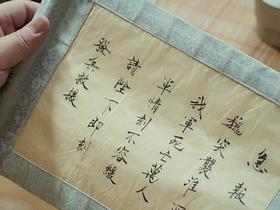 急報
魏突襲淮
我軍死亡萬人
軍情刻不容緩
請陛下即刻
發兵救援